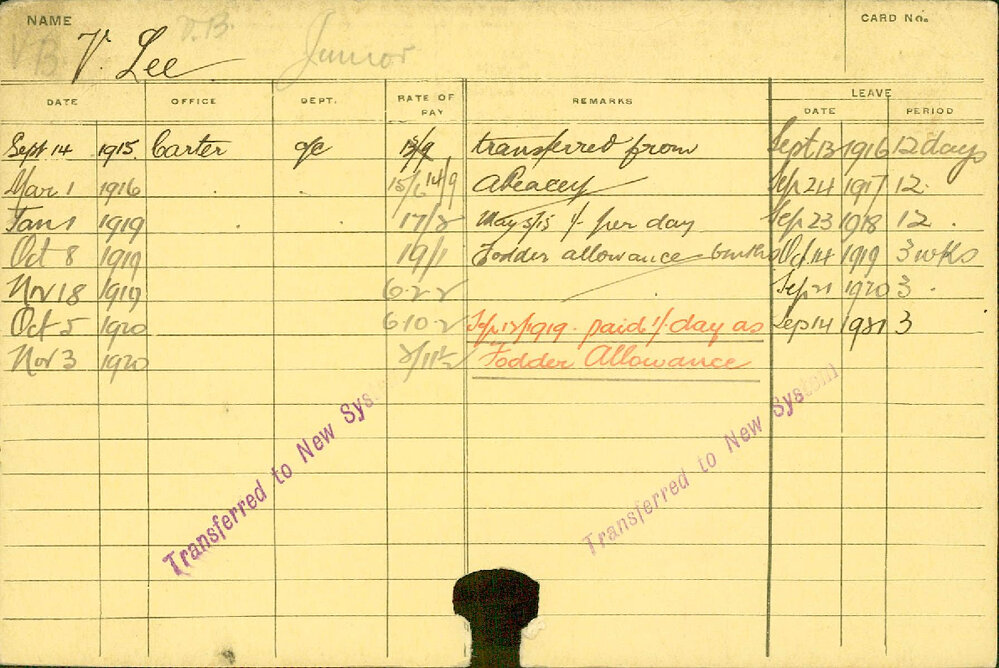 NAME CARD No.
V.B. V. Lee V.B. Junior
LEAVE
DATE OFFICE DEPT. RATE OF PAY REMARKS DATE PERIOD
Sept 14 1915. Carter o/c 13/9 transferred from Sept 13 1916 12 days
Mar 1 1916 15/6 14/9 Sep 24 1917 12.
Jan 1 1919 17/2 May 3/15 1/- per day Sep 23 1918 12.
Oct 8 1919 19/1 Fodder allowance 6 mths Oct 14 1919 3 wks
Nov 18 1919 6-2-2 Sep 21 1920 3.
Oct 5 1920 6-10-2 Sep 12/1919. paid 1/- day as Sep 14 1921 3
Nov 3 1920 Fodder Allowance
Transferred to New System
Transferred to New System